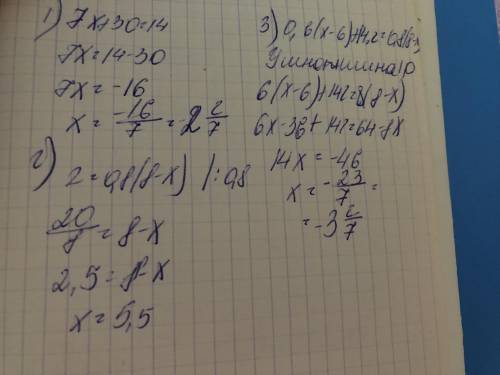 1) 7x+30=14
7x=14-30
7x=-16
x= -16/7 = 2 2/7
2) 2=0,8(8-x) |:0,8
20/8 = 8-x
2,5=8-x
x=5,5
3) 0,6(x-6)+14,2=0,8(8-x)
6(x-6)+142=8(8-x)
6x-36+142=64-8x
14x=-46
x= -23/7 =
= -3 2/7